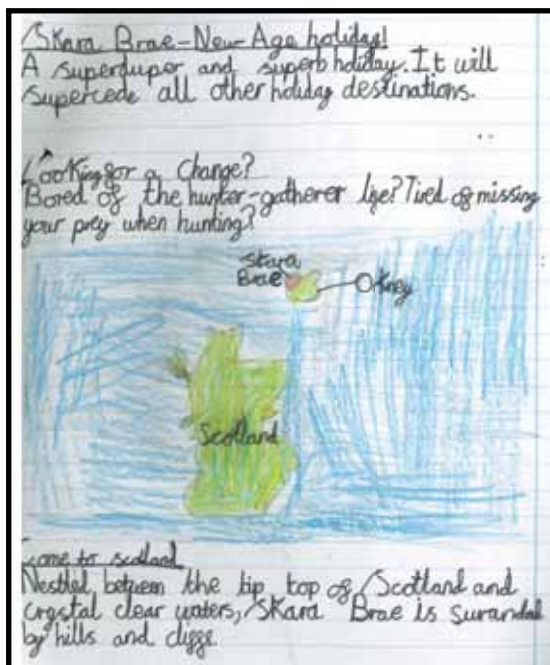 Skara Brae-New-Age holiday!
A superduper and superb holiday. It will
supercede all other holiday destinations.
Looking for a change?
Bored of the hunter-gatherer life? Tired of missing
your prey when hunting?
Skara
Brae
Orkney
Scotland
Come to scotland
Nestled between the tip top of Scotland and
crystal clear waters, Skara Brae is surandad
by hills and cliffs.